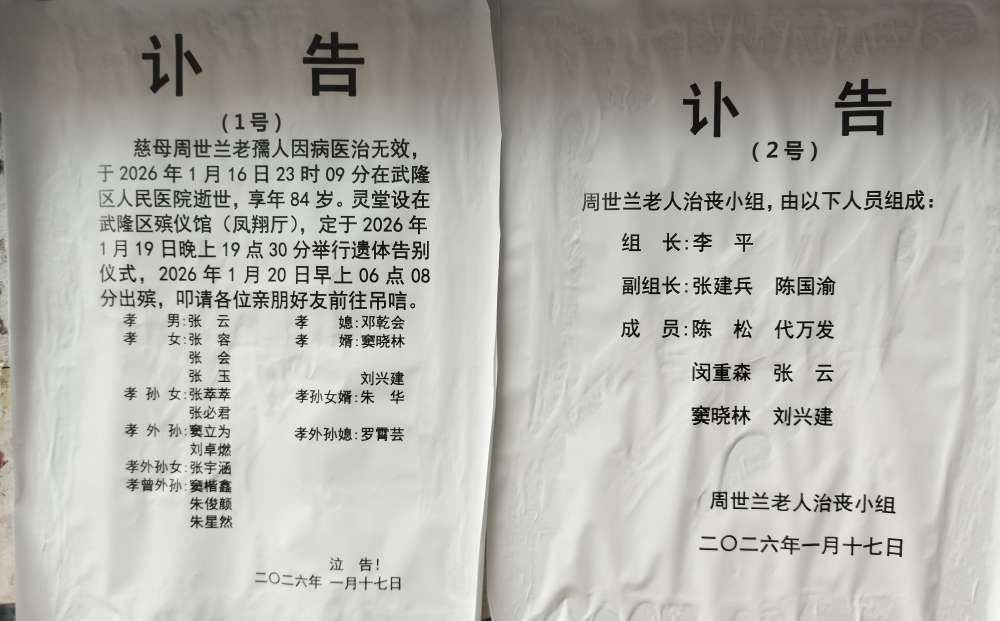 讣 告
(1号)
慈母周世兰老孺人因病医治无效，
于2026年1月16日23时09分在武隆
区人民医院逝世，享年84岁。灵堂设在
武隆区殡仪馆（凤翔厅），定于2026年
1月19日晚上19点30分举行遗体告别
仪式，2026年1月20日早上06点08
分出殡，叩请各位亲朋好友前往吊唁。
孝 男:张 云 孝 媳:邓乾会
孝 女:张 容 孝 婿:窦晓林
张 会
张 玉 刘兴建
孝孙女:张萃萃 孝孙女婿:朱 华
张必君
孝外孙:窦立为 孝外孙媳:罗霄芸
刘卓燃
孝外孙女:张宇涵
孝曾外孙:窦楷鑫
朱俊颜
朱星然
泣 告!
二〇二六年 一月十七日
讣 告
(2号)
周世兰老人治丧小组，由以下人员组成：
组 长:李 平
副组长:张建兵 陈国渝
成 员:陈 松 代万发
闵重森 张 云
窦晓林 刘兴建
周世兰老人治丧小组
二〇二六年一月十七日